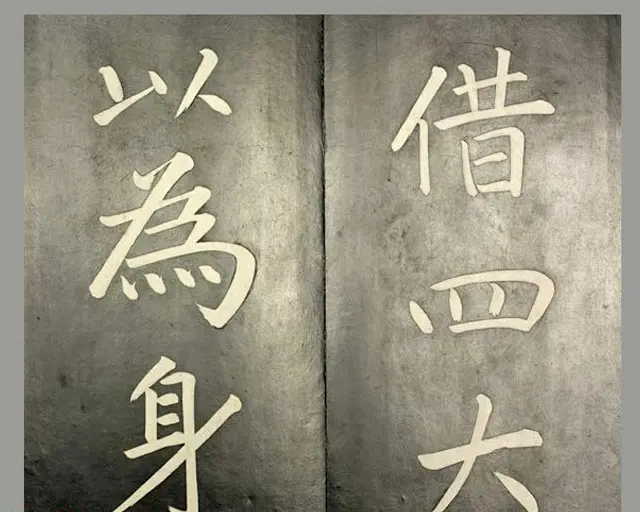 借四大
以為身